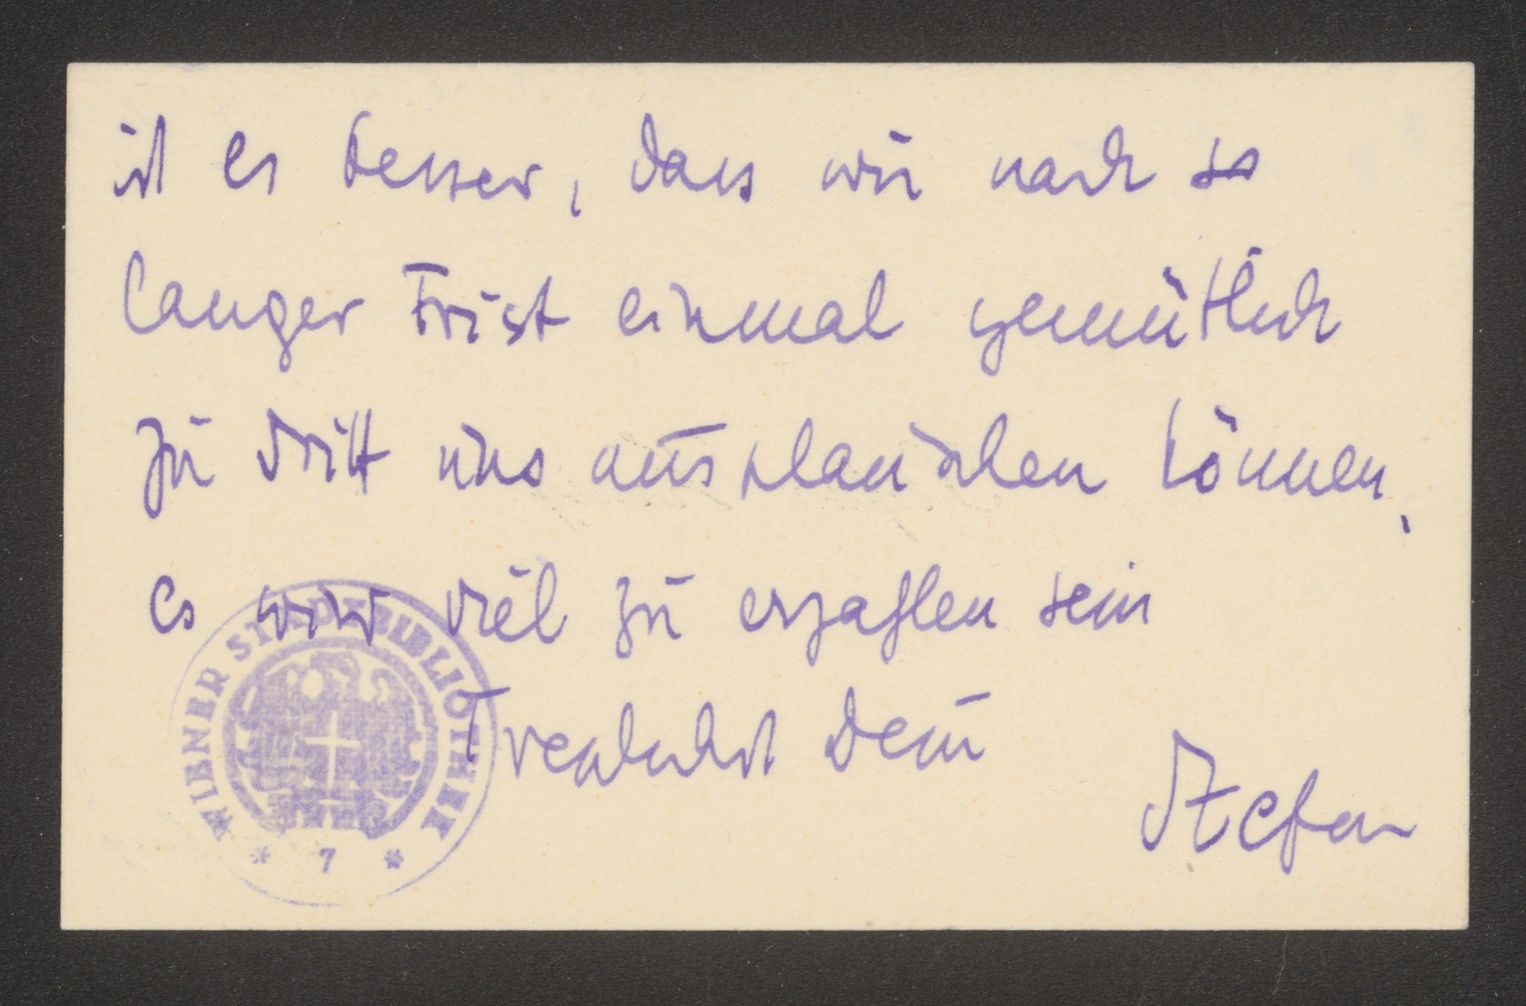 ist es besser, dass wir nach so
langer Frist einmal gemütlich
zu dritt uns ausplauschen können,
es wird viel zu erzahlen sein
Dein
Stefan
WIENER STADTBIBLIOTHEK
* 7 *